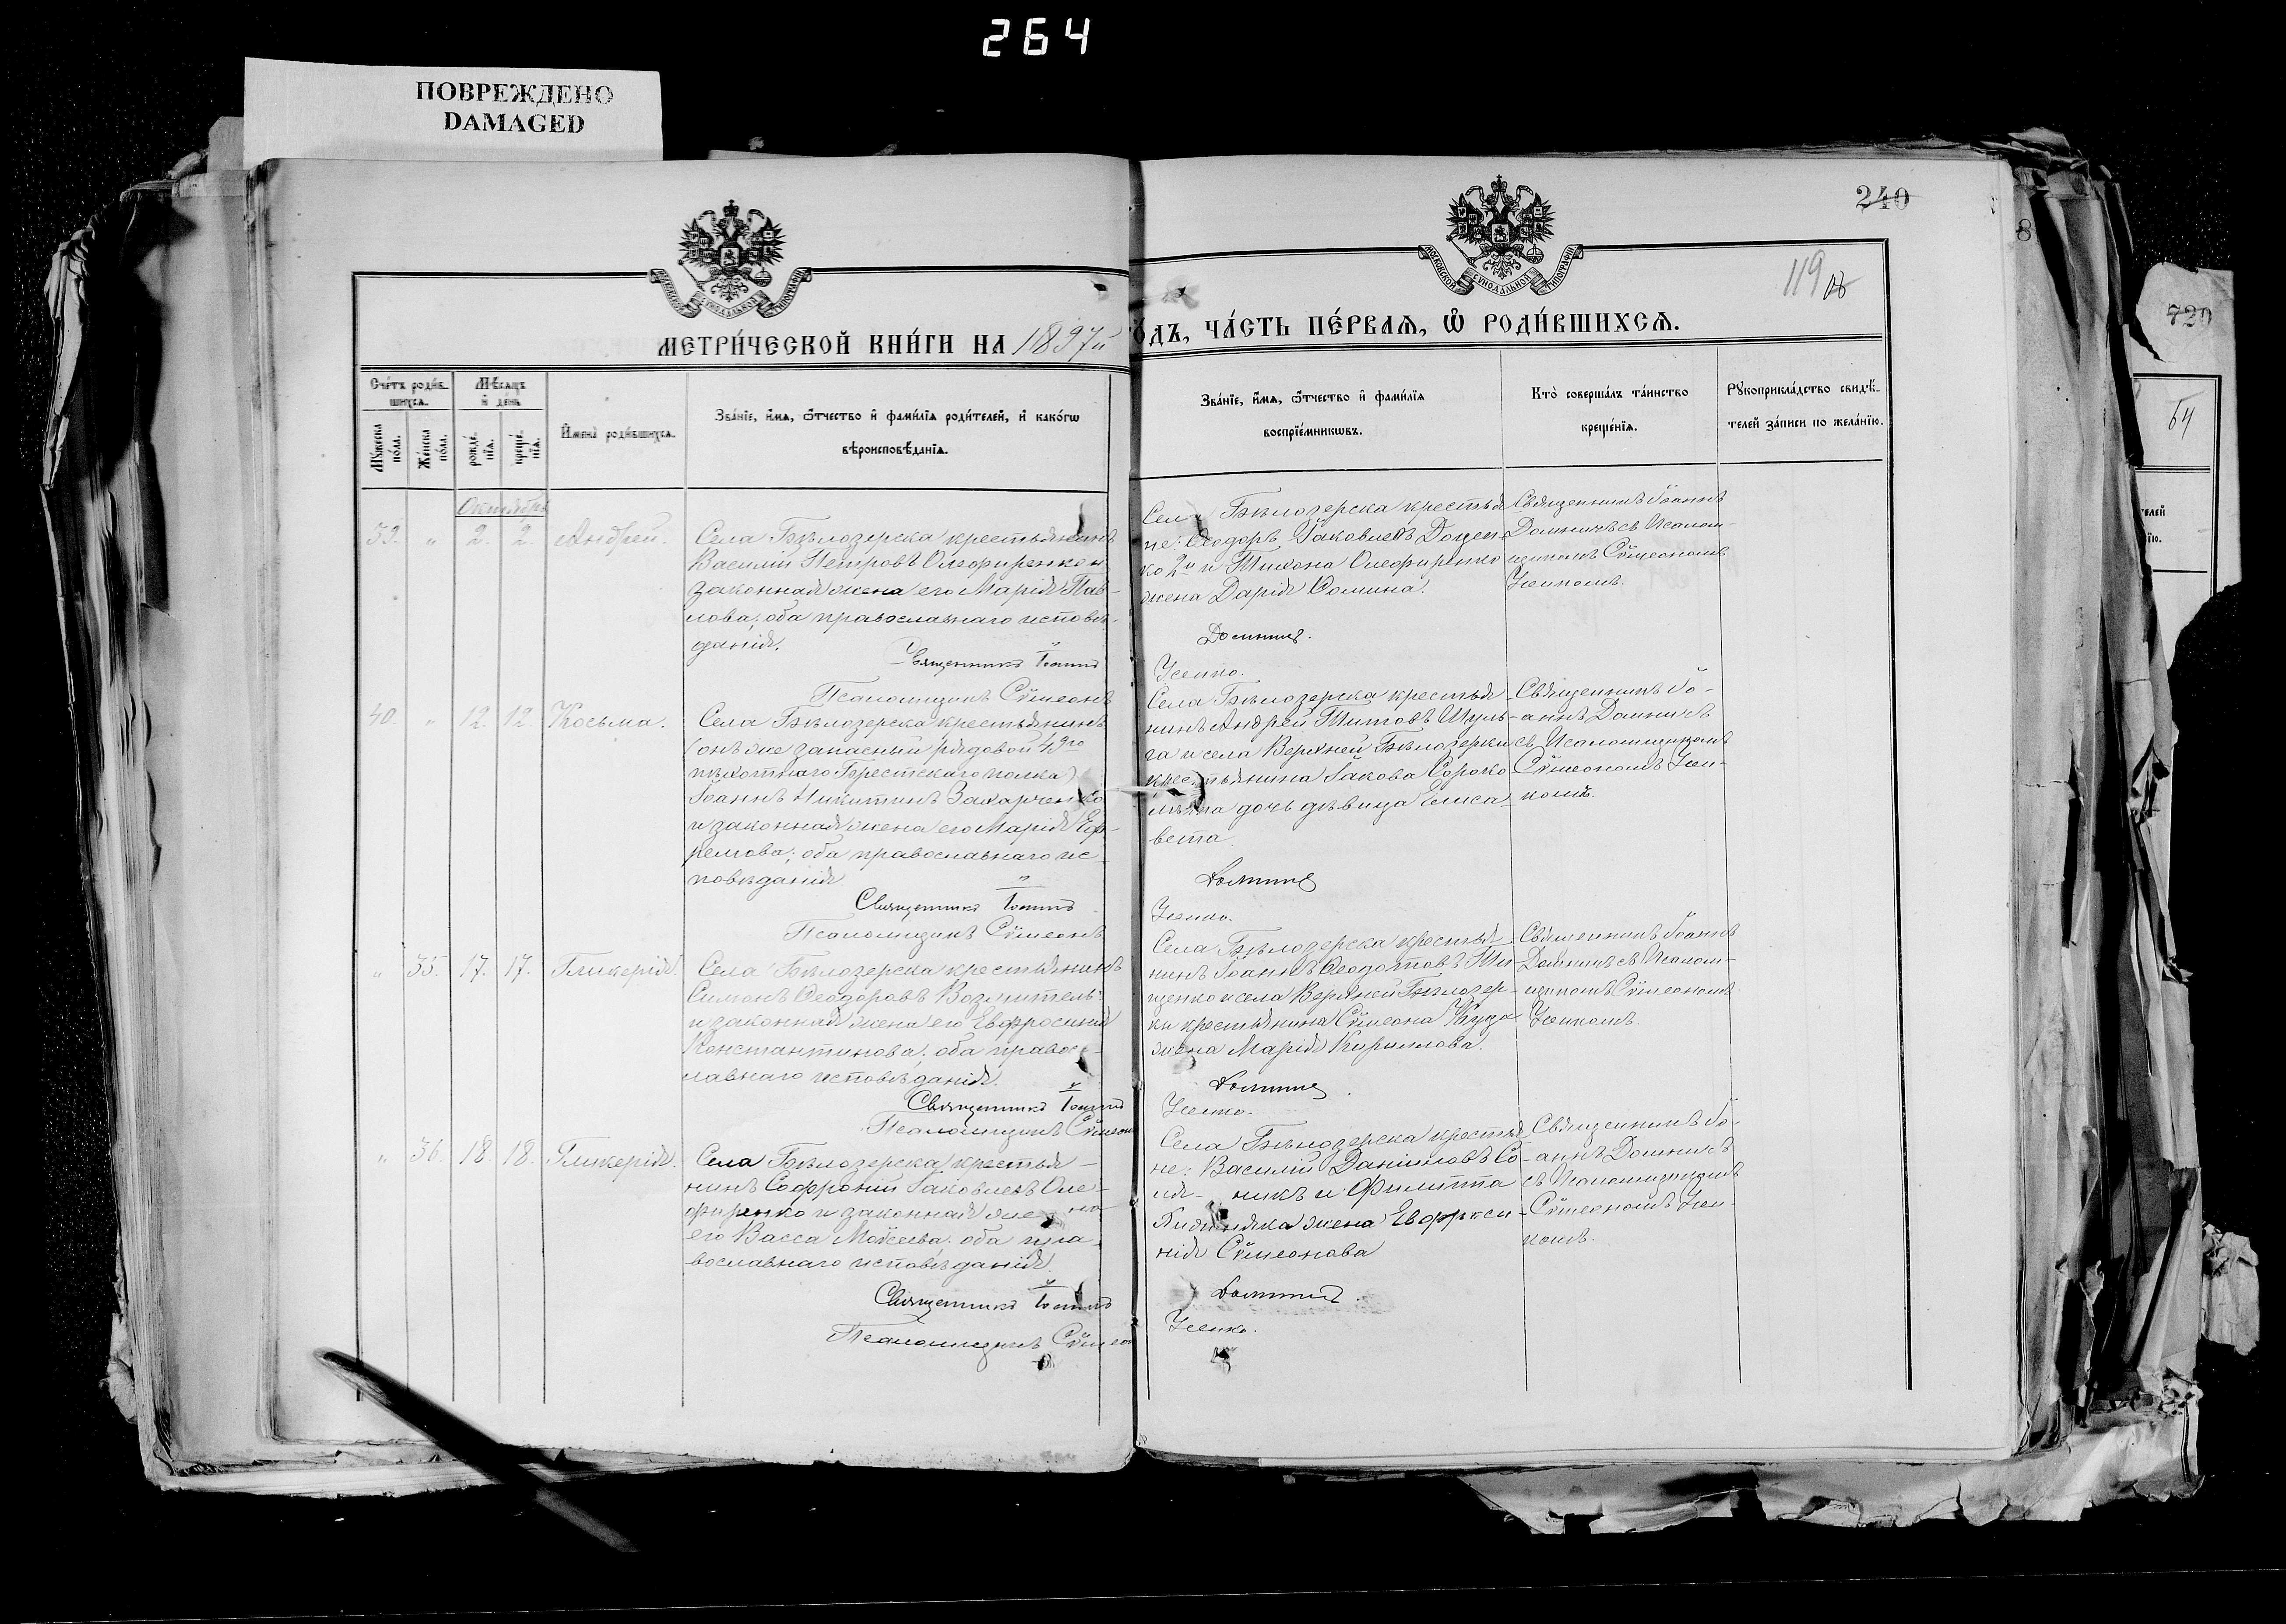 264
ПОВРЕЖДЕНО
DAMAGED
240
119 об
8
729
64
МОСКОВСКОЙ СУНОДАЛЬНОЙ ТИПОГРАФІИ
МОСКОВСКОЙ СУНОДАЛЬНОЙ ТИПОГРАФІИ
МЕТРИ́ЧЕСКОЙ КНИ́ГИ НА 1897й
ГО́ДЪ, ЧА́СТЬ ПЕ́РВАѦ, Ѡ҆ РОДИ́ВШИХСѦ.
Сче́тъ роди́в-
шихсѧ.
Мꙋ́жеска по́ла.
Же́нска по́ла.
Мѣ́сѧцъ и҆ де́нь
рожде́-
нїѧ.
креще́-
нїѧ.
И҆мена̀ роди́вшихсѧ.
Зва́нїе, и҆́мѧ, ѻ҆́тчество и҆ фами́лїѧ роди́телей, и҆ како́гѡ
вѣроисповѣ́данїѧ.
Зва́нїе, и҆́мѧ, ѻ҆́тчество и҆ фами́лїѧ
воспрїе́мникѡвъ.
Кто̀ соверша́лъ та́инство
креще́нїѧ.
Рꙋкоприкла́дство свидѣ́-
телей за́писи по жела́нїю.
Октябрь
39. " 2. 2. Андрей.
Села Бѣлозерска крестьянинъ
Василій Петровъ Олефиренко и
законная жена его Марія Пав-
лова; оба православнаго исповѣ-
данія.
Священникъ Іоаннъ
Псаломщикъ Сѵмеонъ
Села Бѣлозерска крестья
не: Ѳеодоръ Іаковлевъ Доцен-
ко 2й и Тихона Олефиренко
жена Дарія Сомина.
Домничъ.
Усенко.
Священникъ Іоаннъ
Домничъ съ Псалом-
щикомъ Сѵмеономъ
Усенкомъ.
40. " 12. 12. Косьма.
Села Бѣлозерска крестьянинъ
(онъ же запасный рядовой 49го
пѣхотнаго Брестскаго полка)
Іоаннъ Никитинъ Захарченко
и законная жена его Марія Еф-
ремова; оба православнаго ис-
повѣданія
Священникъ Іоаннъ
Псаломщикъ Сѵмеонъ
Села Бѣлозерска крестья
нинъ Андрей Титовъ Шуль-
га и села Верхней Бѣлозерки
крестьянина Іакова Сороко
лѣта дочь дѣвица Елиса-
вета
Домничъ
Усенко.
Священникъ Іо-
аннъ Домничъ
съ Псаломщикомъ
Сѵмеономъ Усен-
комъ.
" 35. 17. 17. Гликерія.
Села Бѣлозерска крестьянинъ
Симонъ Ѳеодоровъ
и законная жена его Евфросинія
Константинова; оба правос-
лавнаго исповѣданія.
Священникъ Іоаннъ
Псаломщикъ Сѵмеонъ
Села Бѣлозерска крестья
нинъ Іоаннъ Ѳеодотовъ Ти-
щенко и села Верхней Бѣлозер-
ки крестьянина Сѵмеона
жена Марія Кириллова.
Домничъ.
Усенко.
Священникъ Іоаннъ
Домничъ съ Псалом-
щикомъ Сѵмеономъ
Усенкомъ.
" 36. 18. 18. Гликерія.
Села Бѣлозерска крестья-
нинъ Софроній Іаковлевъ Оле-
фиренко и законная жена
его Васса Моѵсеева; оба пра-
вославнаго исповѣданія.
Священникъ Іоаннъ
Псаломщикъ Сѵмеонъ
Села Бѣлозерска крестья
не: Василій Даніиловъ
никъ и Филиппа
жена Евфроси-
нія Сѵмеонова
Домничъ.
Усенко.
Священникъ Іо-
аннъ Домничъ
съ Псаломщикомъ
Сѵмеономъ Усен
комъ.